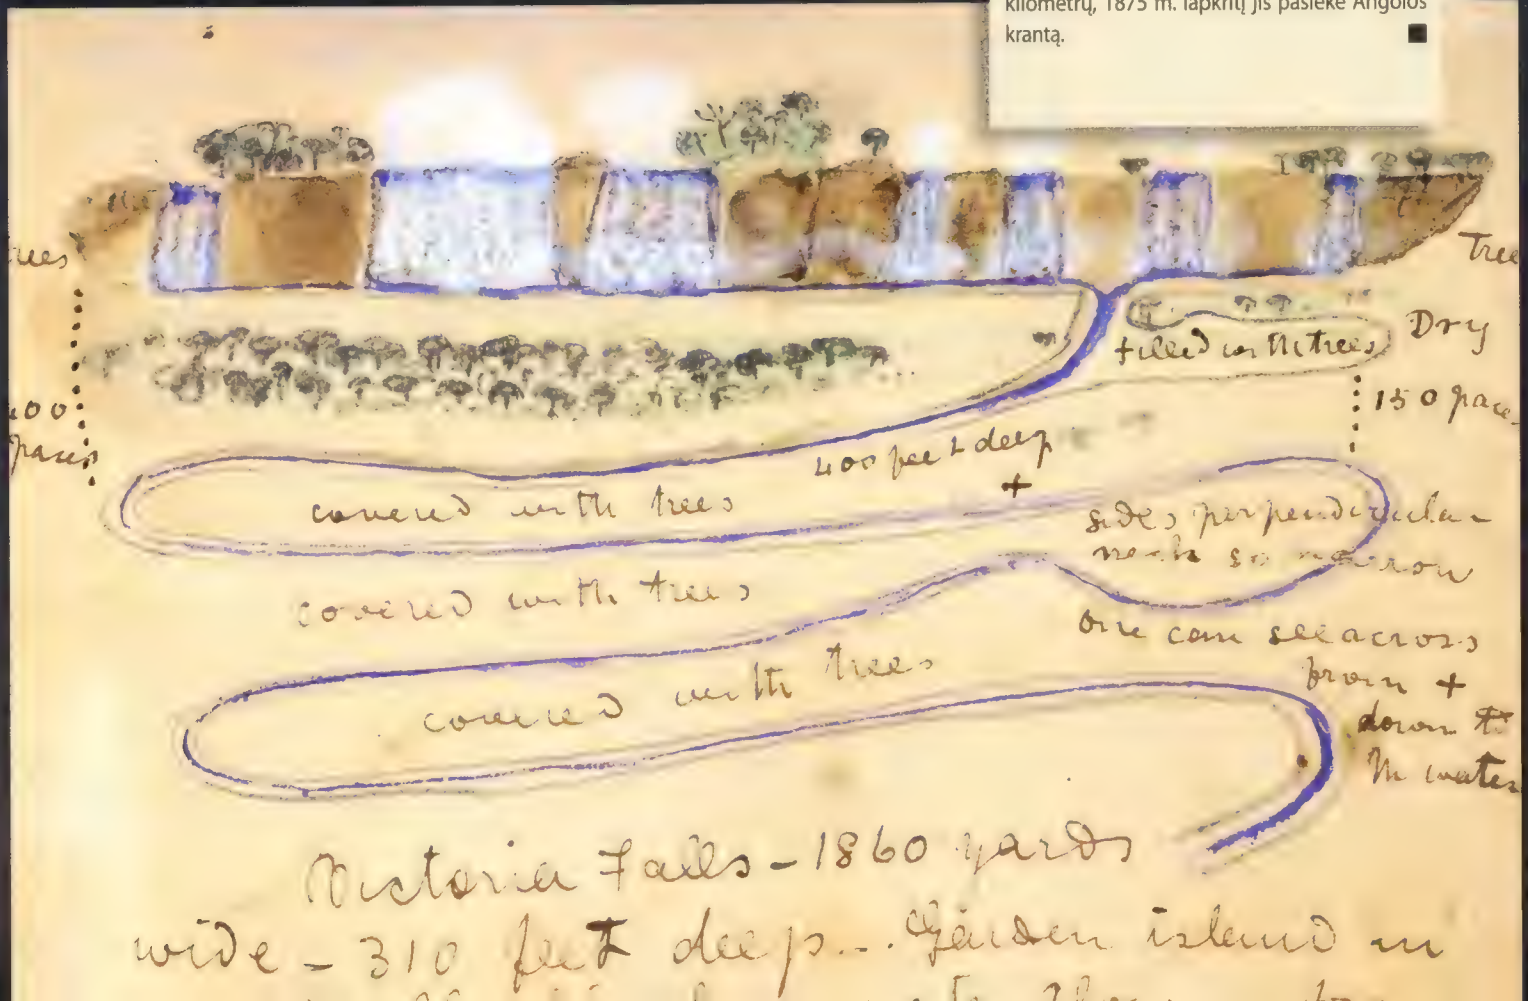 kilometrų, 1875 m. lapkritį jis pasiekė Angolos
krantą.
Tree
Dry
filled with trees
150 pace
paces
400 feet deep
+
covered with trees
sides perpendicular
neck so narrow
covered with trees
one can see across
from +
down to
covered with trees
water
Victoria Falls – 1860 yards
wide – 310 feet deep... Garden island in